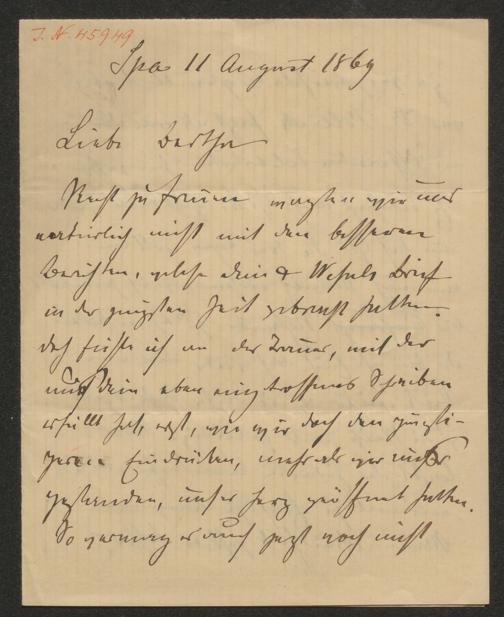 J. N. 45949
Spa 11 August 1869
Liebe Bertha
Recht zu freuen wagten wir uns
natürlich nicht mit den besseren
Berichten, welche dein & Wesels Brief
in der jüngsten Zeit gebracht hatten.
doch fühle ich an der Trauer, mit der
mich dein eben eingetroffenes Schreiben
erfüllt hat, erst, wie wir doch den günsti-
geren Eindrücken, mehr als wir uns
gestanden, unser Herz geöffnet hatten.
So vermag es auch jetzt noch nicht